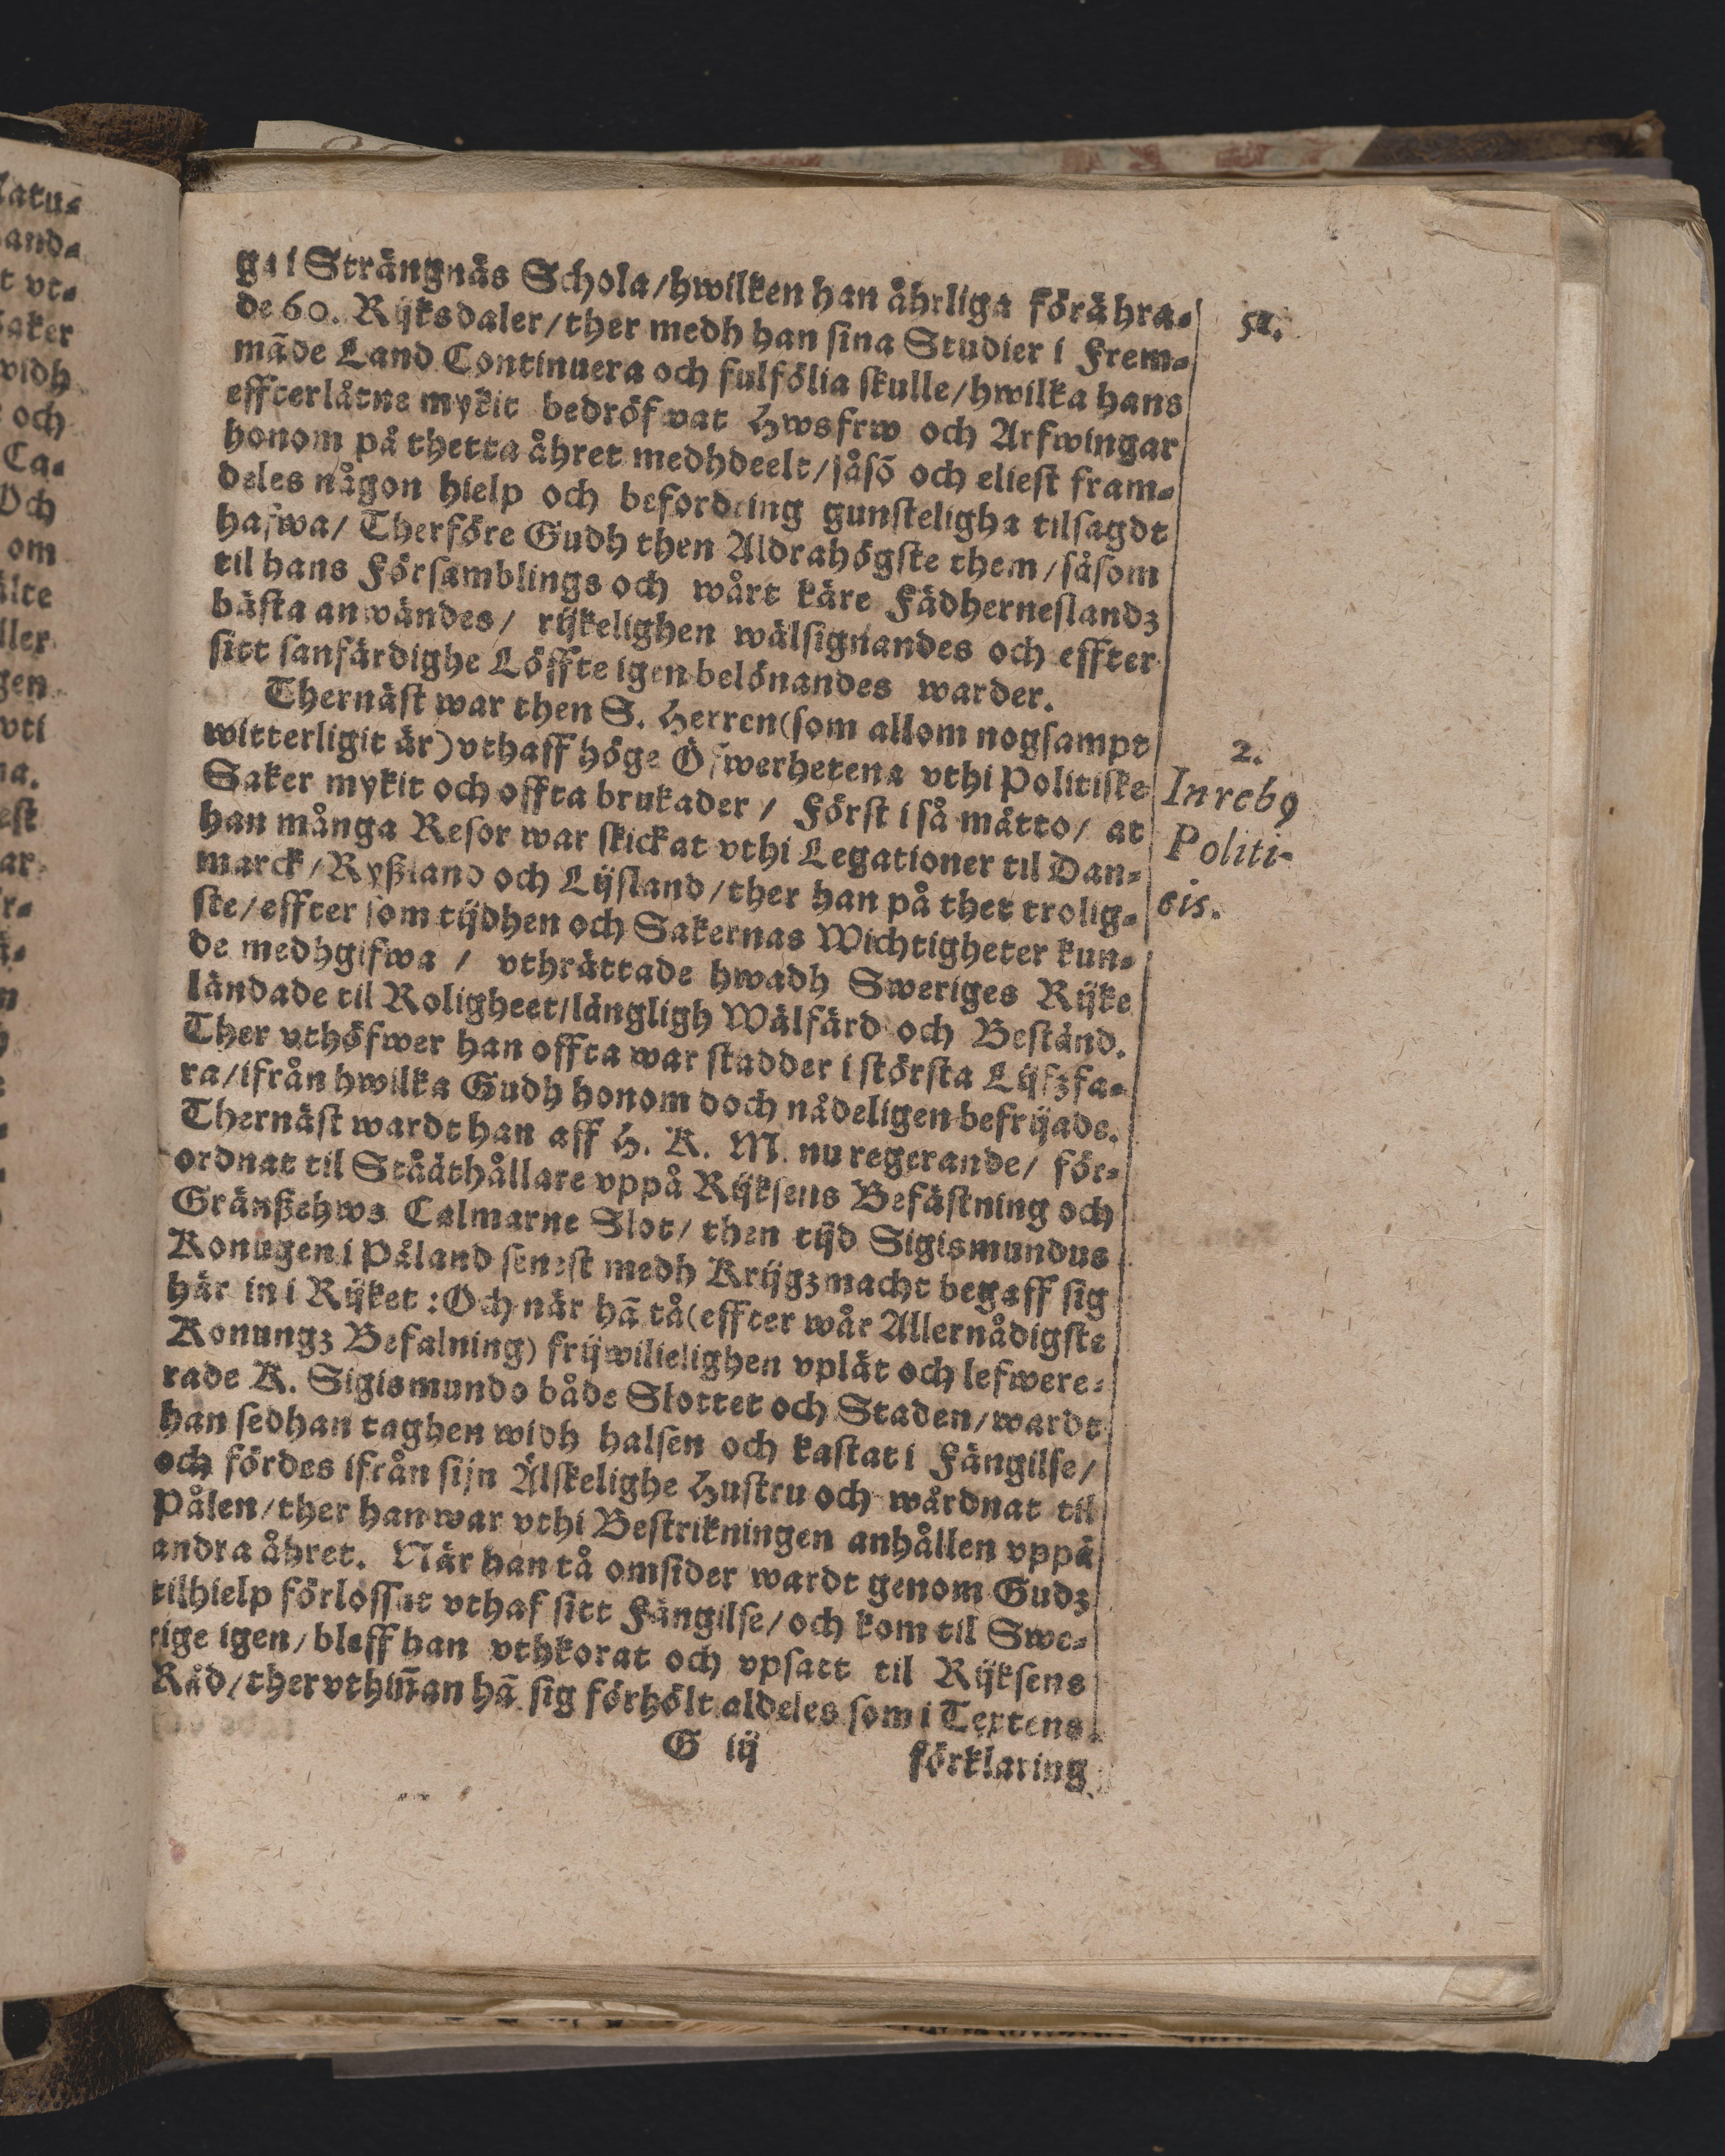 ga i Strängnäs Schola/hwilken han åhrliga förähra-
51.
de 60. Rijksdaler/ther medh han sina Studier i Frem-
mãde Land Continuera och fulfölia skulle/hwilka hans
effterlåtne mykit bedröfwat Hwsfrw och Arfwingar
honom på thetta åhret medhdeelt/såsõ och eliest fram-
deles någon hielp och befordring gunsteligha tilsagdt
hafwa/ Therföre Gudh then Aldrahögste them/såsom
til hans Församblings och wårt käre Fädherneslandz
bästa anwändes/ rijkelighen wälsignandes och effter
sitt sanfärdighe Löffte igen belönandes warder.
Thernäst war then S. Herren(som allom nogsampt
witterligit är)vthaff höge Öfwerhetena vthi Politiske
2.
Inreb9
Politi-
cis.
Saker mykit och offta brukader / Först i så måtto/ at
han många Resor war skickat vthi Legationer til Dan-
marck/Ryßland och Lijfland/ther han på thet trolig-
ste/effter som tijdhen och Sakernas Wichtigheter kun-
de medhgifwa / vthrättade hwadh Sweriges Rijke
ländade til Roligheet/längligh Wälfärd och Bestånd.
Ther vthöfwer han offta war stadder i största Lijfzfa-
ra/ifrån hwilka Gudh honom doch nådeligen befrijade.
Thernäst wardt han aff H. K. M. nu regerande/ för-
ordnat til Ståäthållare vppå Rijksens Befästning och
Gränßehws Calmarne Slot/ then tijd Sigismundus
Konugen i Påland senest medh Krijgzmacht begaff sig
här in i Rijket : Och när hã tå(effter wår Allernådigste
Konungz Befalning) frijwilielighen vplät och lefwere-
rade K. Sigismundo både Slottet och Staden/wardt
han sedhan taghen widh halsen och kastat i Fängilse/
och fördes ifrån sijn Älskelighe Hustru och wårdnat til
Pålen/ther han war vthi Bestrikningen anhållen vppå
andra åhret. När han tå omsider wardt genom Gudz
tilhielp förlossat vthaf sitt Fängilse/och kom til Swe-
rige igen/bleff han vthkorat och vpsatt til Rijksens
Råd/thervthiñan hã sig förhölt aldeles som i Textens
G iij
förklaring